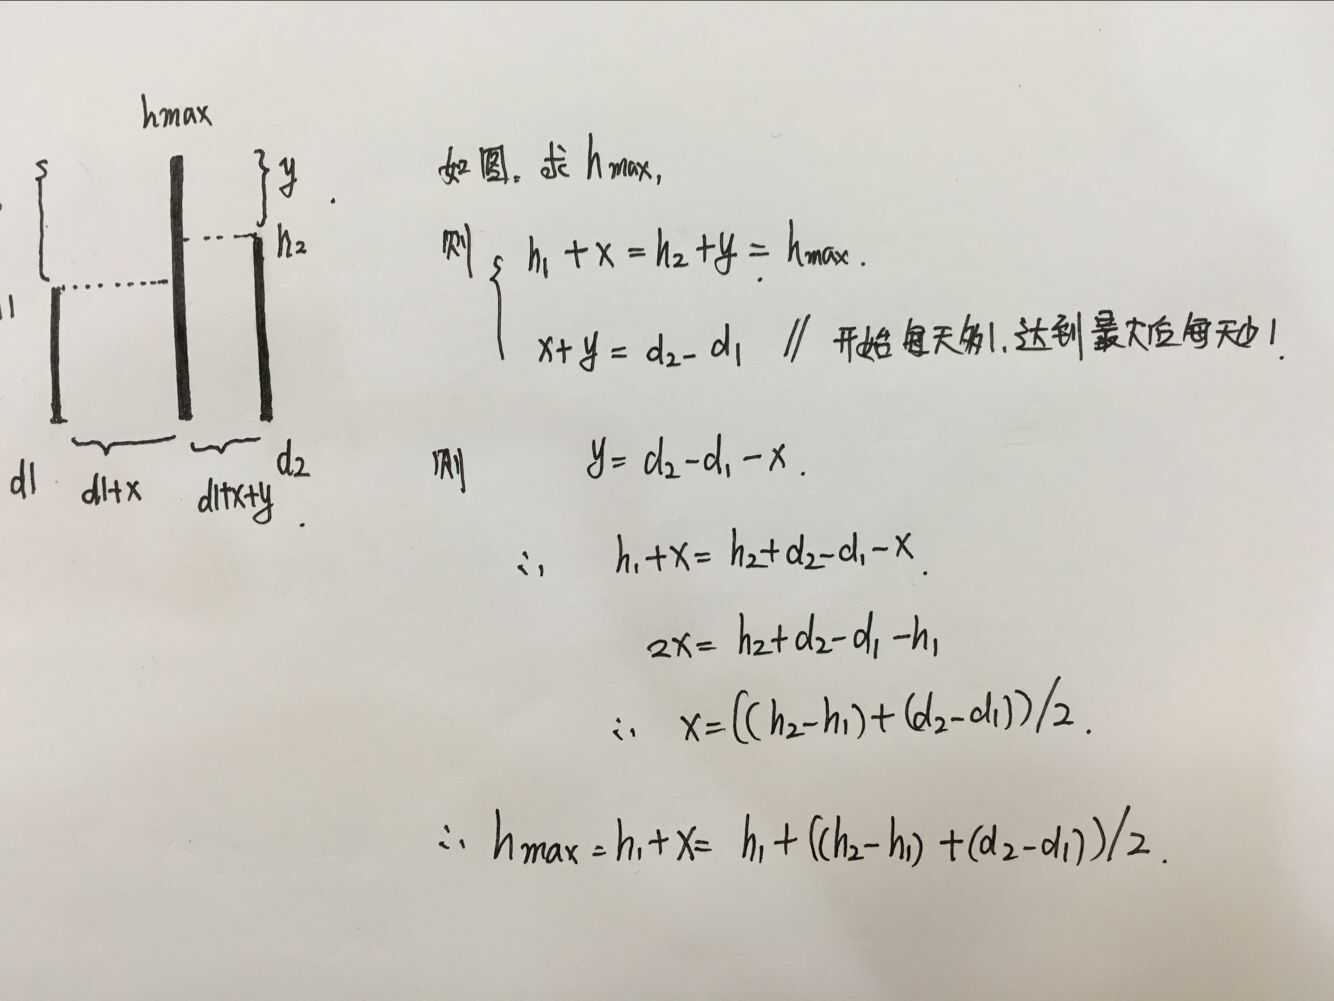 hmax
y
h2
1
d1
d1+x
d1+x+y
d2
如图. 求 hmax,
则 { h1 + x = h2 + y = hmax.
x + y = d2 - d1 // 开始每天多1. 达到最大后每天少1.
则 y = d2 - d1 - x.
∴ h1 + x = h2 + d2 - d1 - x.
2x = h2 + d2 - d1 - h1
∴ x = ((h2 - h1) + (d2 - d1))/2.
∴ hmax = h1 + x = h1 + ((h2 - h1) + (d2 - d1))/2.